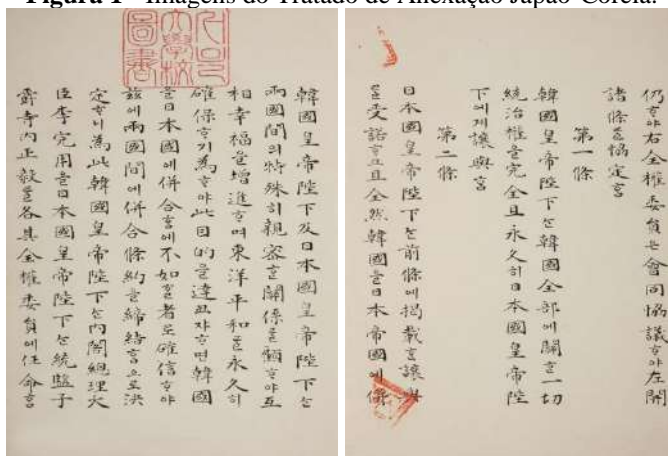 Figura 1 - Imagens do Tratado de Anexação Japão-Coreia.
서울
大學校
圖書
韓國皇帝陛下及日本國皇帝陛下는
兩國間의特殊히親密ᄒᆞᆫ關係를顧ᄒᆞ야互
相幸福을增進ᄒᆞ며東洋平和를永久히
確保ᄒᆞ기爲ᄒᆞ야此目的을達코쟈ᄒᆞ면韓國
을日本國에併合ᄒᆞᆷ에不如ᄒᆞᆯ者로確信ᄒᆞ야
玆에兩國間에併合條約을締結ᄒᆞᆷ으로決
定ᄒᆞ니爲此韓國皇帝陛下는內閣總理大
臣李完用을日本國皇帝陛下는統監子
爵寺內正毅를各其全權委員에任命ᄒᆞᆷ
仍ᄒᆞ야右全權委員은會同協議ᄒᆞ야左開
諸條를協定ᄒᆞᆷ
第一條
韓國皇帝陛下는韓國全部에關ᄒᆞᆫ一切
統治權을完全且永久히日本國皇帝陛
下에게讓與ᄒᆞᆷ
第二條
日本國皇帝陛下는前條에揭載ᄒᆞᆫ讓與
를受諾ᄒᆞ고且全然韓國을日本帝國에併